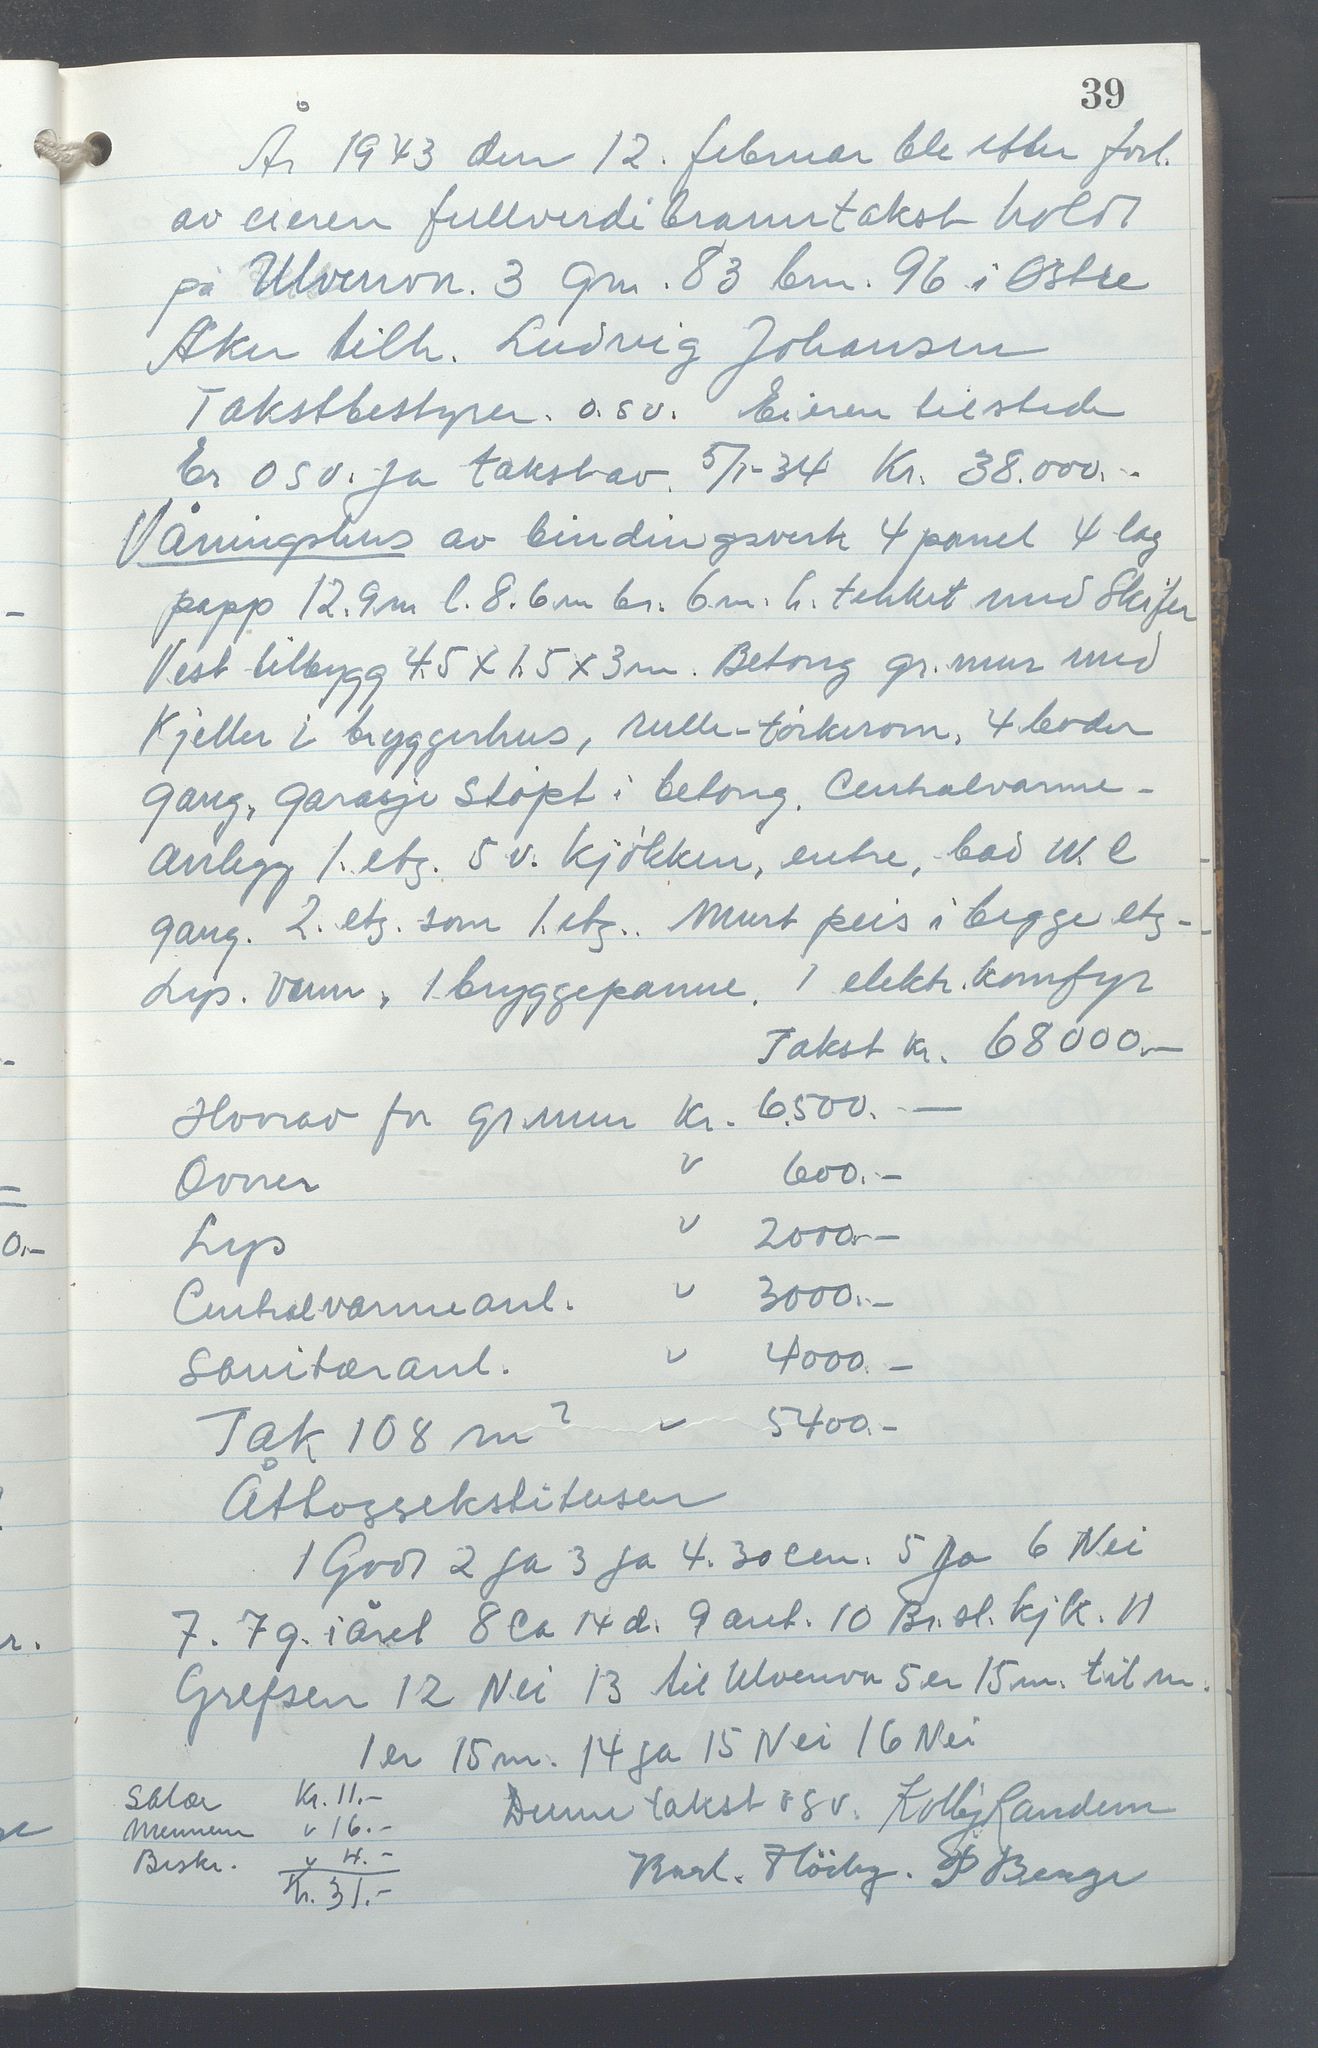 39
År 1943 den 12. februar ble etter forl.
av eieren fullverdi branntakst holdt
på Ulvenvn. 3 gnr. 83 bnr. 96 i Østre
Aker tilh. Ludvig Johansen
Takstbestyrer. o.s.v. Eieren tilstede
Er osv. Ja takst av 5/1-34 Kr. 38.000.-
Våningshus av bindingsverk 4 panel 4 lag
papp 12.9m l. 8.6m br. 6m. h. tekket med Skifer
Vest tilbygg 4.5 x 1.5 x 3m. Betong gr.mur med
Kjeller i bryggerhus, rulle-tørkerom, 4 boder
gang, garasje støpt i betong. Centralvarme-
anlegg 1. etg. 5 v. kjøkken, entre, bad W.C
gang. 2. etg. som 1. etg.. Murt peis i begge etg.-
Lys. vann, 1 bryggepanne, 1 elektr. komfyr
Takst kr. 68000.-
Hvorav for gr.mur Kr. 6.500.-
Ovner " 600.-
Lys " 2000.-
Centralvarmeanl. " 3000.-
Sanitæranl. " 4000.-
Tak 108 m2 " 5400.-
1 Godt 2 ja 3 ja 4. 30 cm. 5 Ja 6 Nei
7. 7 g. i året 8 Ca 14 d. 9 året. 10 Br.st. kjk. 11
Grefsen 12 Nei 13 til Ulvenvn 5 er 15m. til nr.
1 er 15m. 14 ja 15 Nei 16 Nei
Salær Kr. 11.-
Mennene " 16.-
Beskr. " 4.-
Kr. 31.-
Denne takst osv. Kolbj Sandem
Karl. Höiby. P Berge